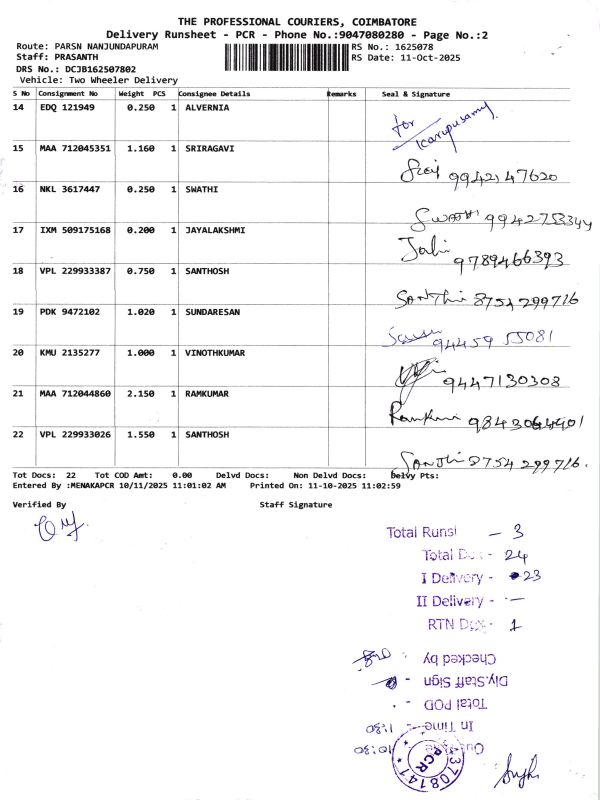 THE PROFESSIONAL COURIERS, COIMBATORE
Delivery Runsheet - PCR - Phone No.:9047080280 - Page No.:2
Route: PARSN NANJUNDAPURAM
RS No.: 1625078
Staff: PRASANTH
RS Date: 11-Oct-2025
DRS No.: DCJB162507802
Vehicle: Two Wheeler Delivery
S No Consignment No Weight PCS Consignee Details Remarks Seal & Signature
14 EDQ 121949 0.250 1 ALVERNIA
for Karupusamy
15 MAA 712045351 1.160 1 SRIRAGAVI
9942147620
16 NKL 3617447 0.250 1 SWATHI
Swathi 9942753344
17 IXM 509175168 0.200 1 JAYALAKSHMI
9789466393
18 VPL 229933387 0.750 1 SANTHOSH
Santhi 8754299716
19 PDK 9472102 1.020 1 SUNDARESAN
94459 55081
20 KMU 2135277 1.000 1 VINOTHKUMAR
9447130308
21 MAA 712044860 2.150 1 RAMKUMAR
Ramkumar
22 VPL 229933026 1.550 1 SANTHOSH
Santhi 8754 299716.
Tot Docs: 22 Tot COD Amt: 0.00 Delvd Docs: Non Delvd Docs: Delvy Pts:
Entered By :MENAKAPCR 10/11/2025 11:01:02 AM Printed On: 11-10-2025 11:02:59
Verified By Staff Signature
Total Runsi - 3
Total Dox - 24
I Delivery - 23
II Delivery - -
RTN Dox - 1
Checked by -
Dly.Staff Sign -
Total POD - .
In Time - 1:30
10:30
PCR
3708141